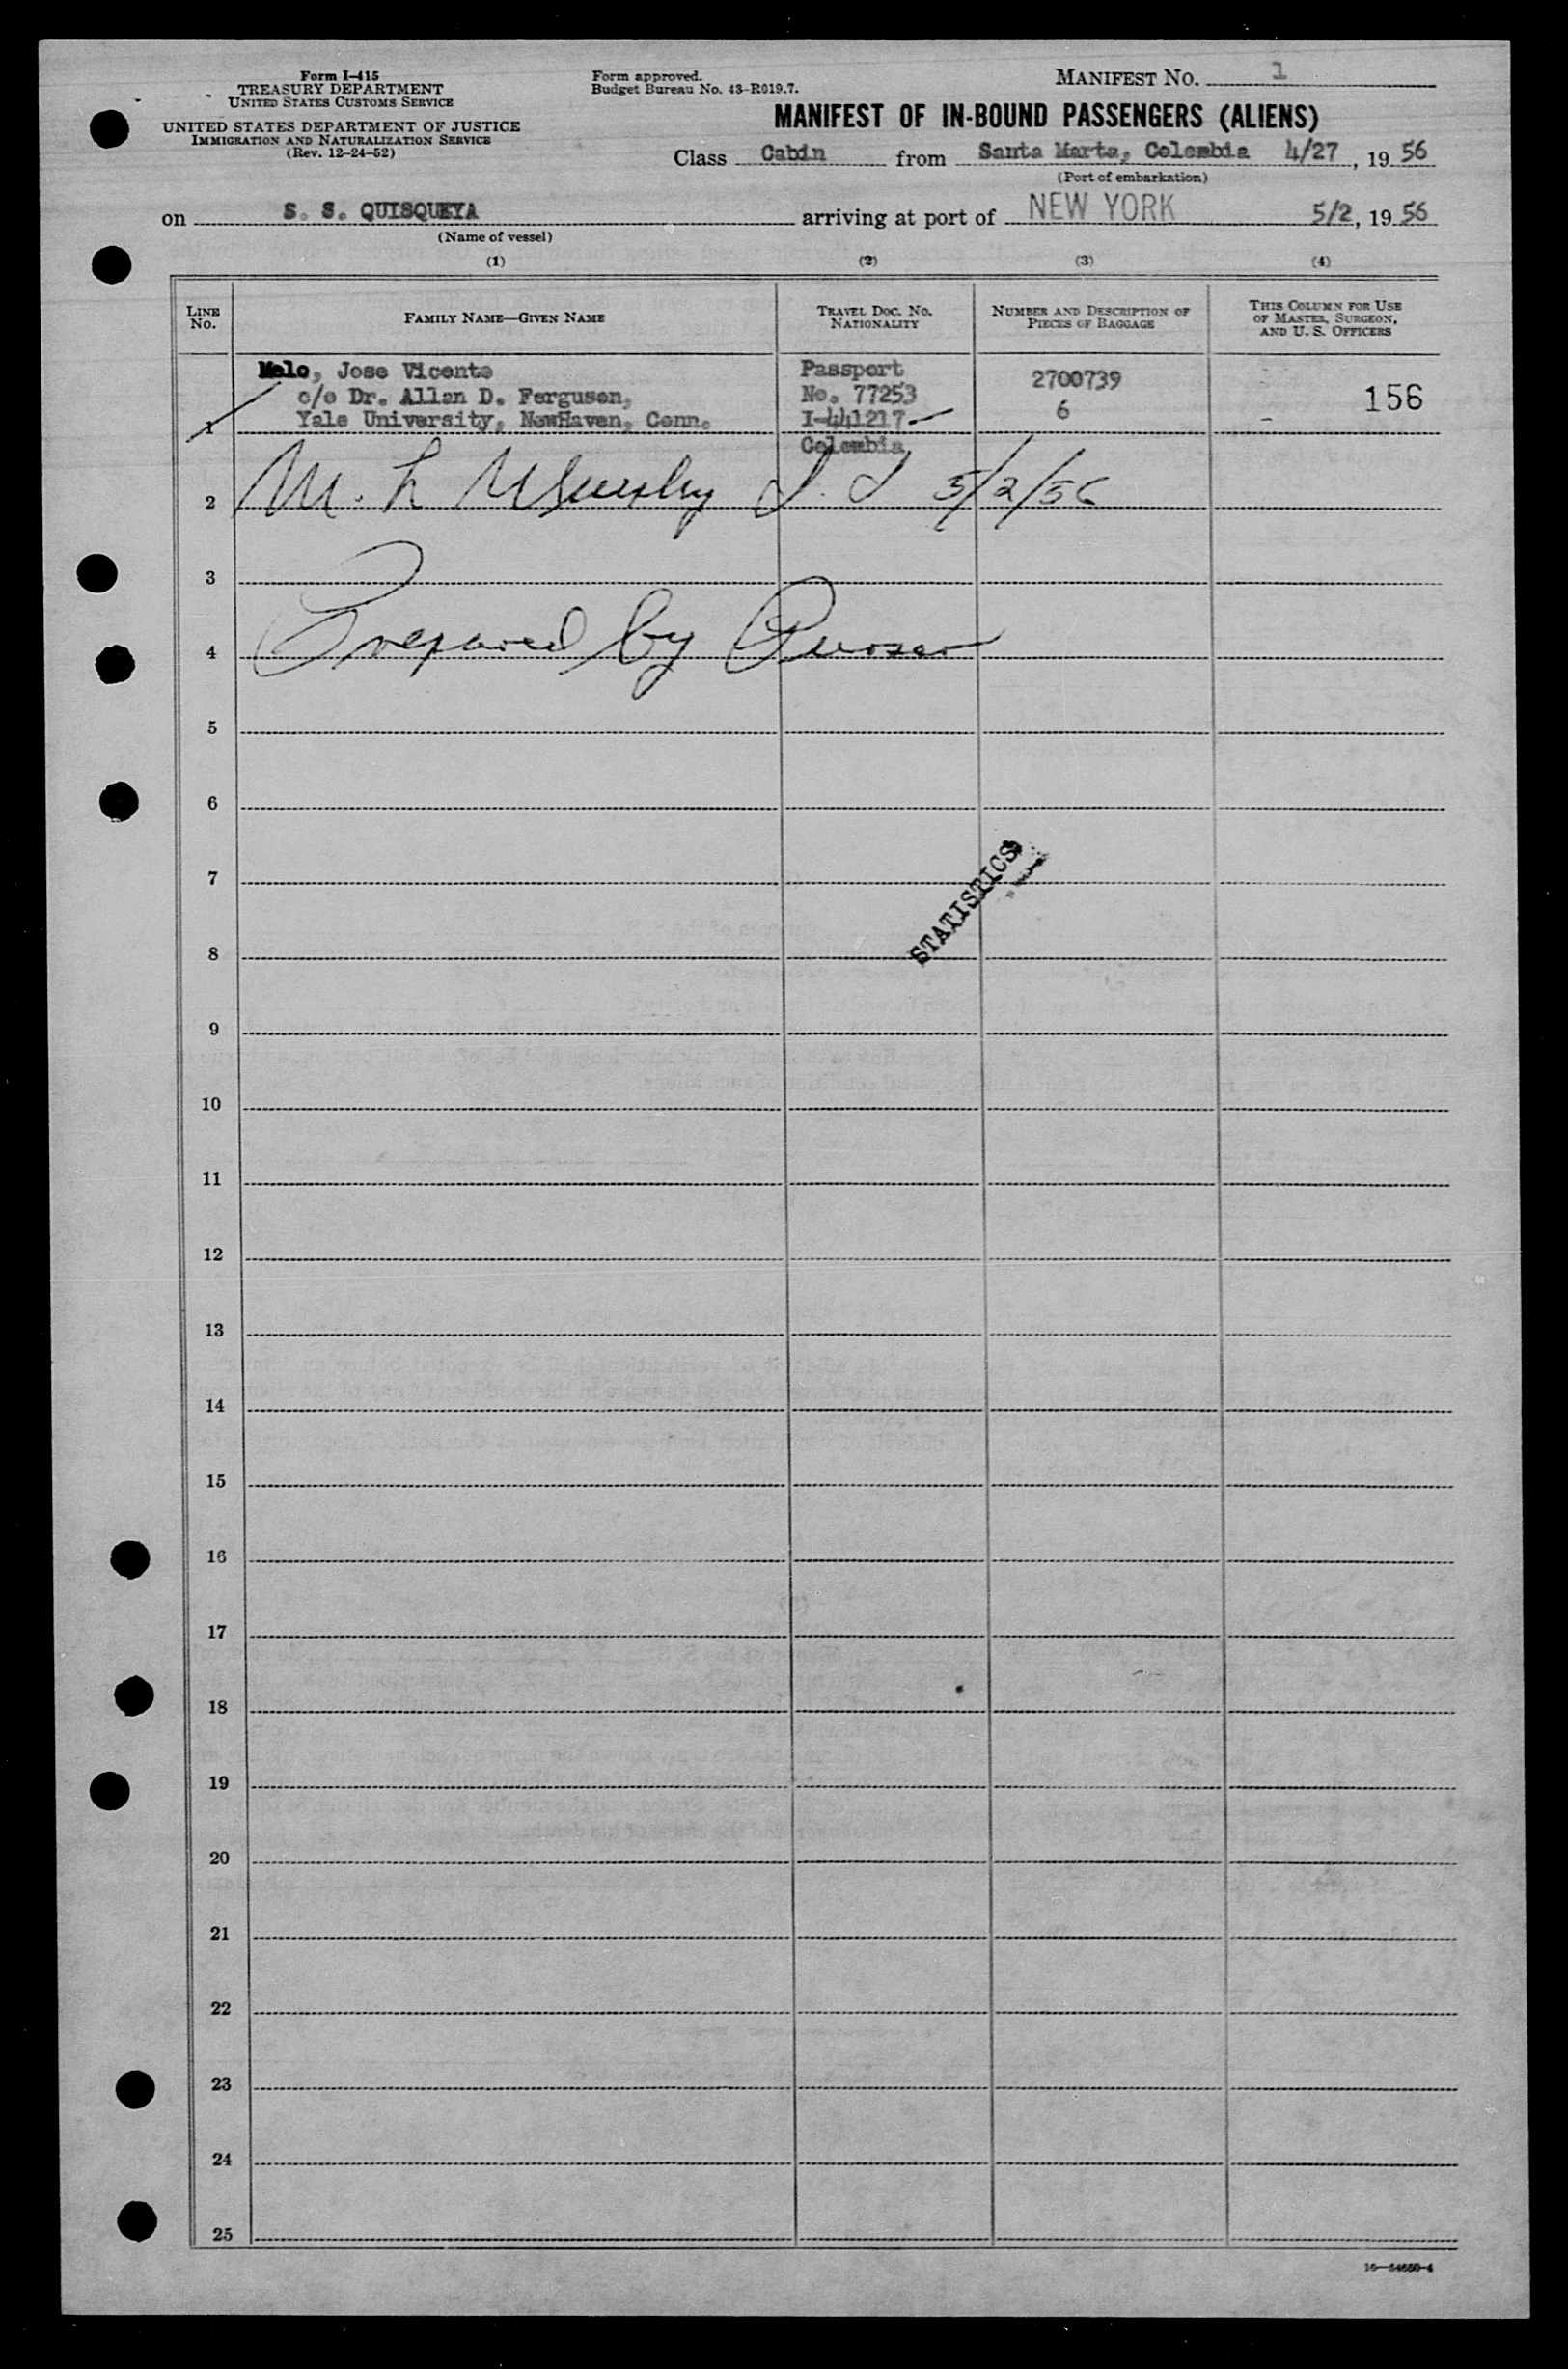 Form I-415
TREASURY DEPARTMENT
UNITED STATES CUSTOMS SERVICE
UNITED STATES DEPARTMENT OF JUSTICE
IMMIGRATION AND NATURALIZATION SERVICE
(Rev. 12-24-52)
Form approved.
Budget Bureau No. 43-R019.7.
MANIFEST NO. 1
MANIFEST OF IN-BOUND PASSENGERS (ALIENS)
Class Cabin from Santa Marta, Colombia 4/27, 19 56
(Port of embarkation)
on S. S. QUISQUEYA arriving at port of NEW YORK 5/2, 19 56
(Name of vessel)
(1) (2) (3) (4)
LINE No. FAMILY NAME—GIVEN NAME TRAVEL DOC. NO. NATIONALITY NUMBER AND DESCRIPTION OF PIECES OF BAGGAGE THIS COLUMN FOR USE OF MASTER, SURGEON, AND U. S. OFFICERS
Melo, Jose Vicente Passport 2700739
c/o Dr. Allan D. Ferguson, No. 77253 6 156
1 Yale University, NewHaven, Conn. I-441217
Colombia
2 M. L 5/2/56
3
4 Prepared by Purser
5
6
7
STATISTICS
8
9
10
11
12
13
14
15
16
17
18
19
20
21
22
23
24
25